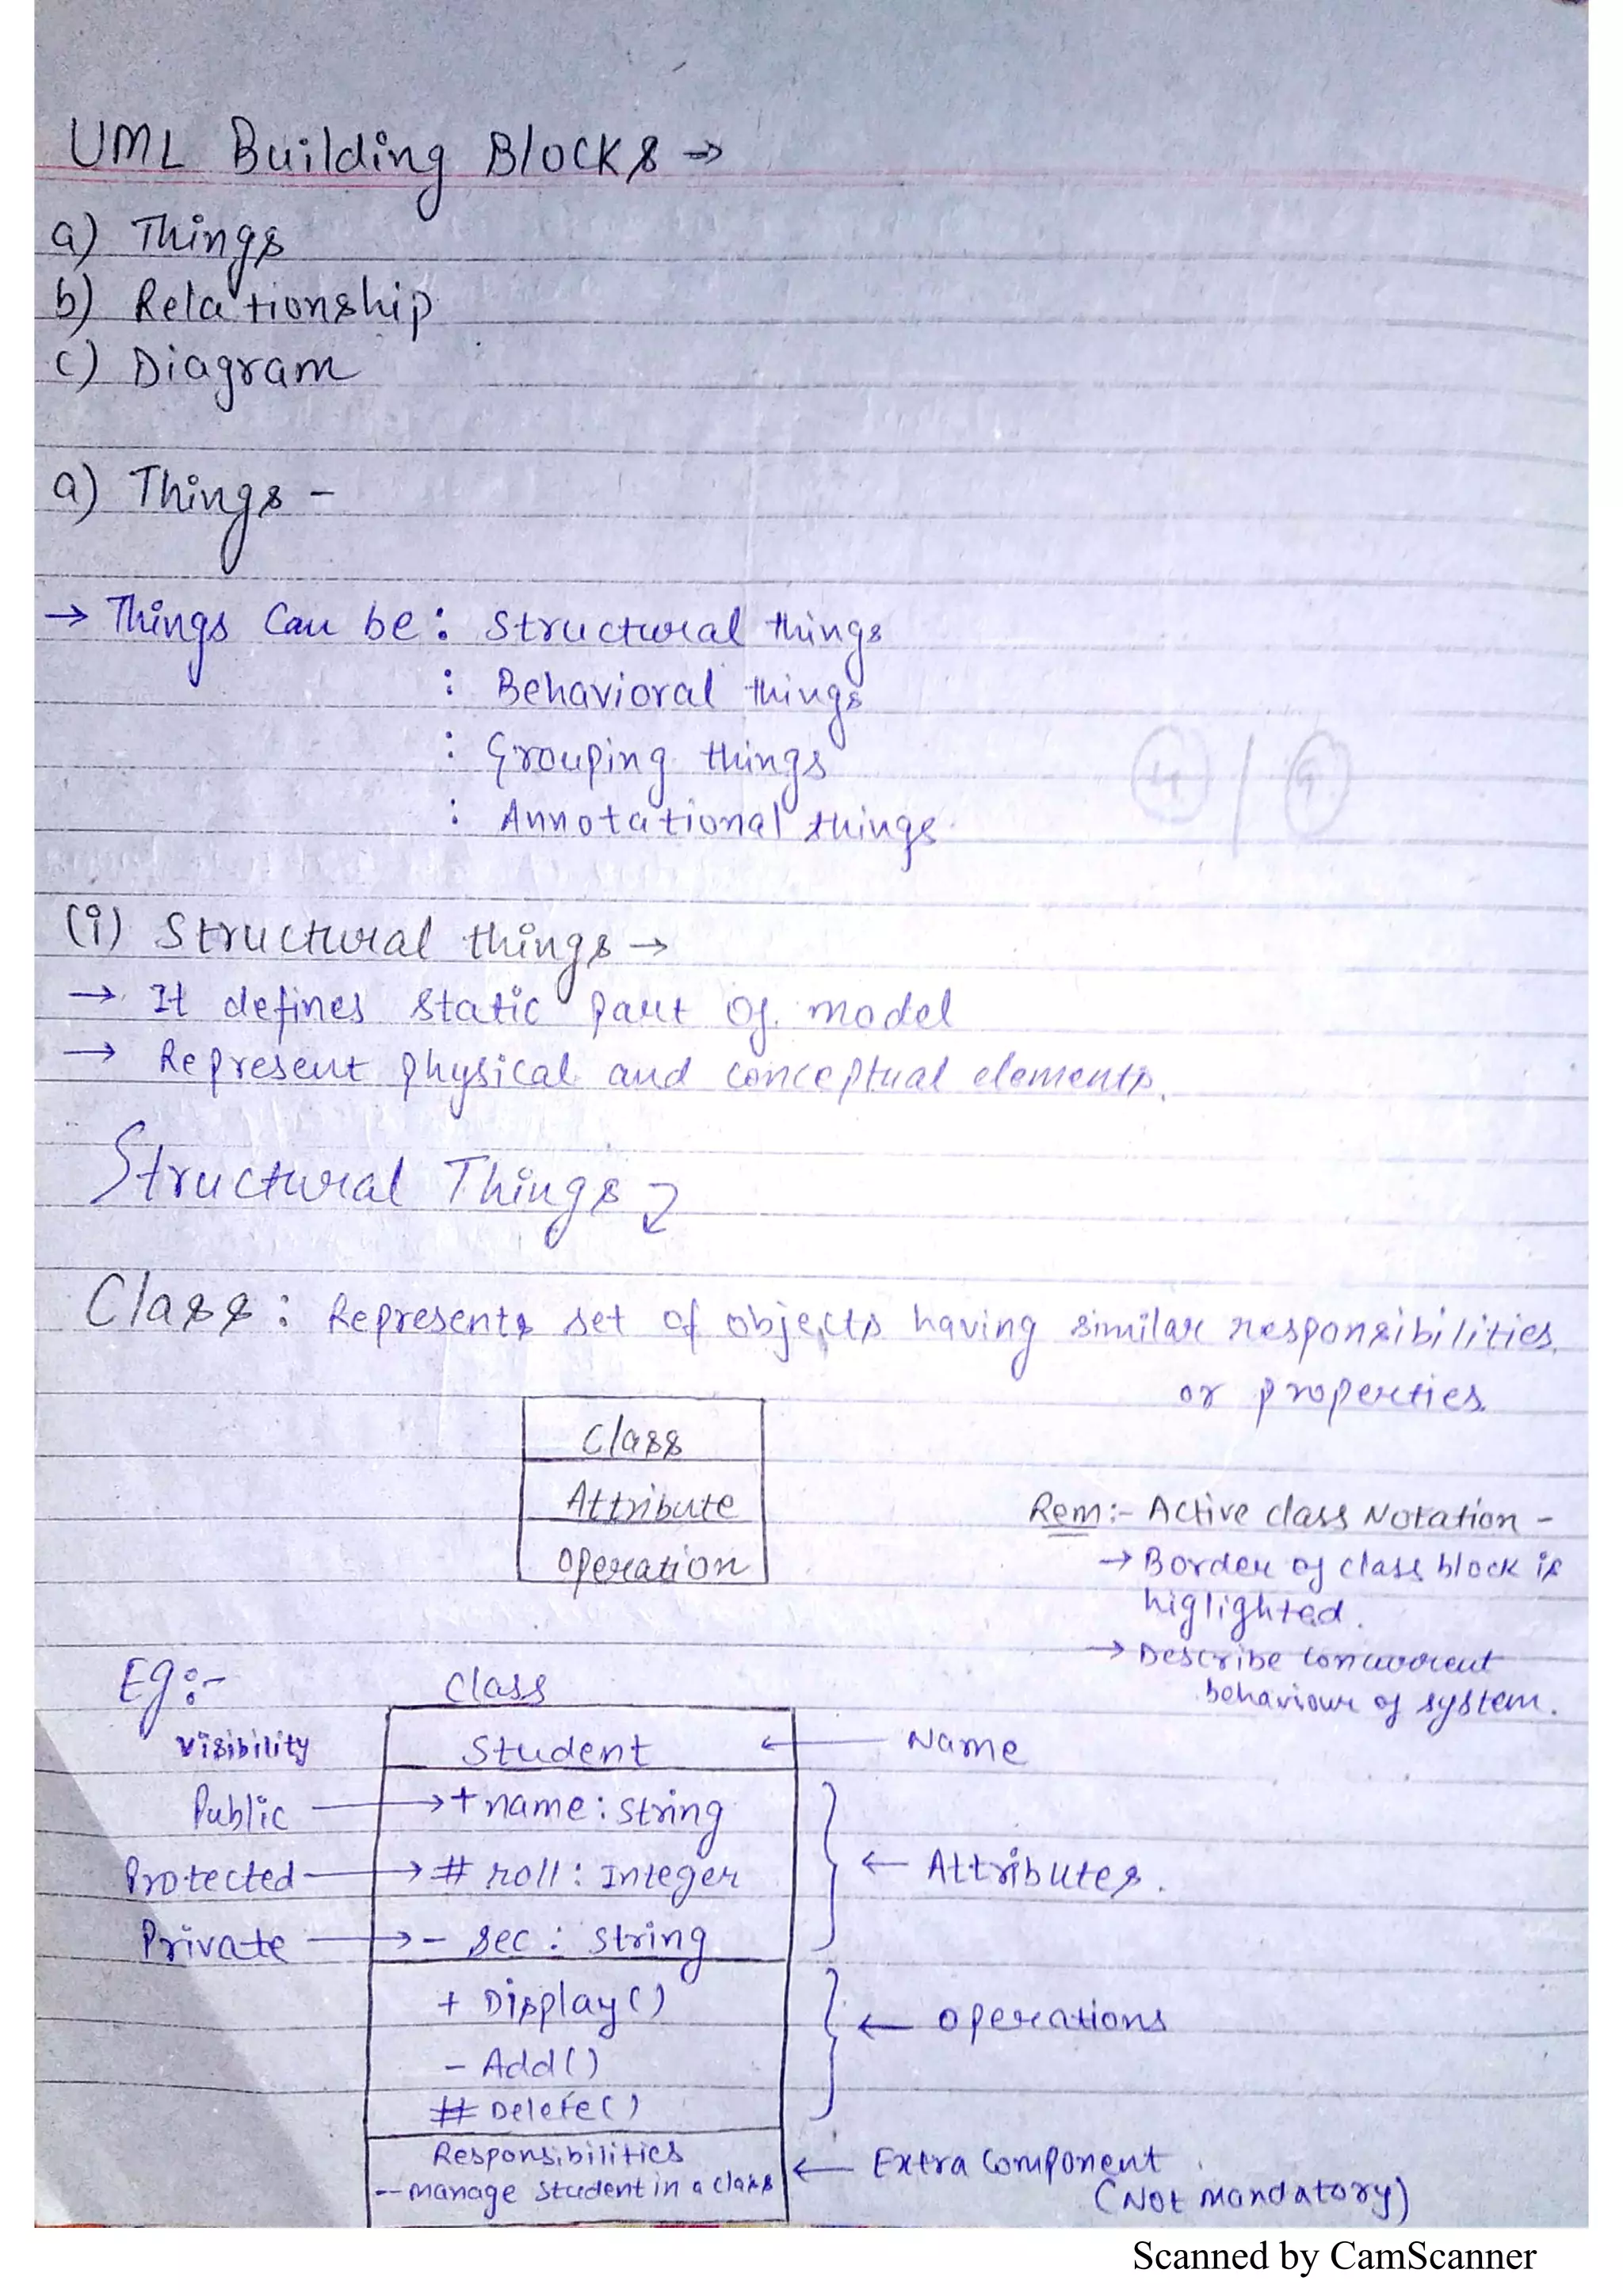 UML Building Blocks →
a) Things
b) Relationship
c) Diagram
a) Things -
→ Things Can be : Structural things
: Behavioral things
: Grouping things
: Annotational things.
(i) Structural things →
→ It defines static part of model
→ Represent physical and conceptual elements.
Structural Things
Class : Represents set of objects having similar responsibilities
or properties.
Class
Attribute
Operation
Rem :- Active class Notation -
→ Border of class block is
higlighted.
→ Describe concurrent
behaviour of system.
Eg:-
Class
Visibility
Student ← Name
Public → + name : string
Protected → # roll : Integer
← Attributes.
Private → - sec : string
+ Display()
← Operations
- Add()
# Delete()
Responsibilities
-- manage student in a class
← Extra Component
(Not Mandatory)
Scanned by CamScanner